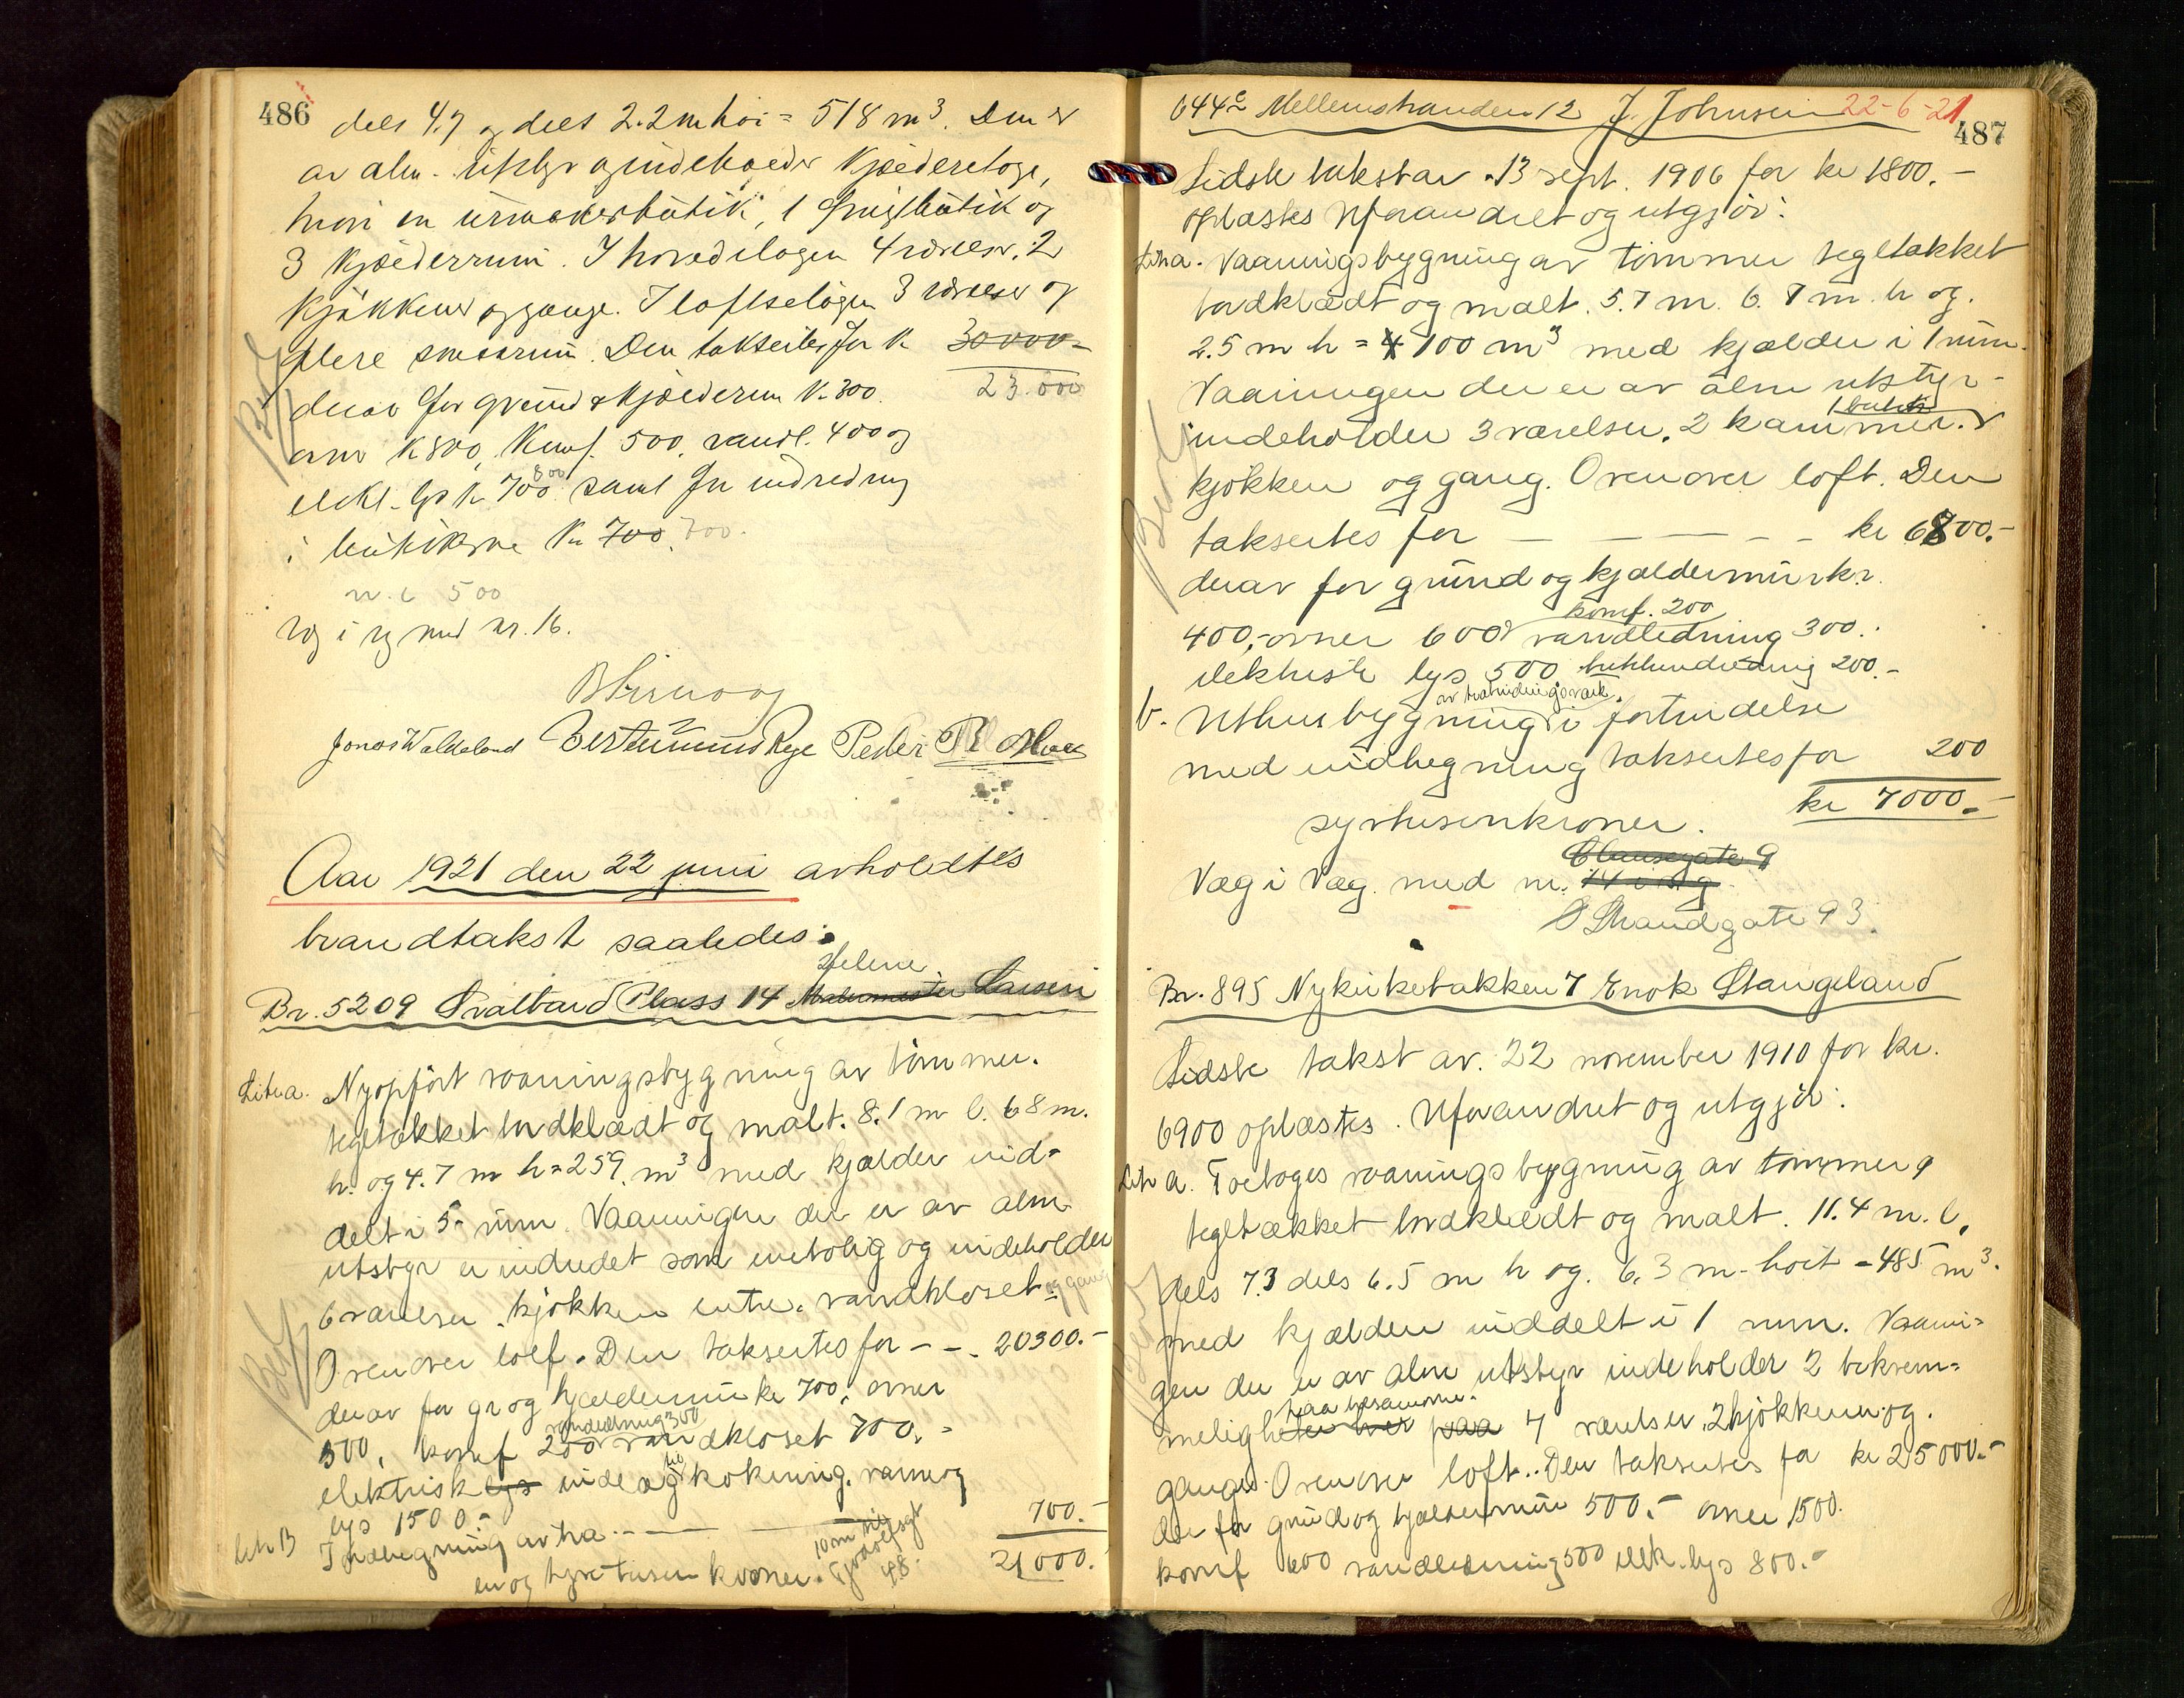 486
dels 4.7 og dels 2.2 m høi = 518 m³. Den er
av alm. utstyr og indeholder kjælderetage,
hvori en urmakerbutik, 1 butik og
3 kjælderrum. I hovedetagen 4 værelser, 2
kjøkkener og gange. I loftsetagen 3 værelser og
flere smaarum. Den takseres for kr 30000-
23.000
derav for grund & kjælderm kr. 300.
ovne K 800, Komf. 500, vandl. 400 og
elekt. lys kr 700 800 samt for indredning
i butikkerne Kr 700. 700.
w.c 500
Væg i væg med nr. 16.
Jonas Waldeland Bertinius Rege Peder
Aar 1921 den 22 juni avholdtes
brandtakst saaledes:
Helene
Br. 5209 Svalbard Plass 14 Malermester Larsen
Litra a. Nyopført vaaningsbygning av tømmer.
tegltækket bordklædt og malt. 8.1 m l. 6.8 m.
br. og 4.7 m h = 259. m³ med kjælder ind-
delt i 5 rum. Vaaningen der er av alm
utstyr er indredet som enebolig og indeholder
6 værelser, kjøkken entre, vandkloset og gang
Ovenover loft. Den taksertes for - - 20300.-
derav for gr og kjældermur kr 700, ovner
vandledning 300
500, komf 200 vandkloset 700.-
elektrisk lys inde og til kokning, varme og
lys 1500.-
Litr B Indhegning av træ - - 700.-
en og tyve tusen kroner. 21000.
10 m til
Tjodolfsgt
48.
644c Mellemstranden 12 J. Johnsen 22-6-21
487
Sidste takst av 13 sept. 1906 for kr 1800.-
oplæstes Uforandret og utgjør:
Litr a. Vaaningsbygning av tømmer tegltækket
bordklædt og malt. 5.7 m. l. 7 m. br og.
2.5 m h = 100 m³ med kjælder i 1 rum.
Vaaningen der er av alm utstyr
1 butik
indeholder 3 værelser, 2 kammer. &
kjøkken og gang. Ovenover loft. Den
taksertes for - - - - - kr 6800.-
derav for grund og kjældermur kr.
komf. 200
400,- ovner 600 vandledning 300.
elektrisk lys 500 butikindredning 200.-
av utmuringsværk
b. Uthusbygning i fortsindelse
med indhegning taksertes for 200
kr 7000.-
syvtusenkroner.
Clausegate 9
Væg i Væg. med nr. 14 i og
Ø Strandgate 93.
Br. 895 Nykirkebakken 7 Enok Stangeland
Sidste takst av. 22 november 1910 for kr.
6900 oplæstes. Uforandret og utgjør:
Litr a. Toetages vaaningsbygning av tømmer
tegltækket bordklædt og malt. 11.4 m. l.
dels 7.3 dels 6.5 m br og. 6.3 m - høit = 485 m³.
med kjælder inddelt i 1 rum. Vaanin-
gen der er av alm utstyr indeholder 2 bekvem-
paa tilsammen.
meligheter hver paa 7 værelser, 2 kjøkkener og.
ganger. Ovenover loft. Den taksertes for kr 25000.-
der for grund og kjældermur 500.- ovner 1500.
komf 600 vandledning 500 elek. lys 800.-